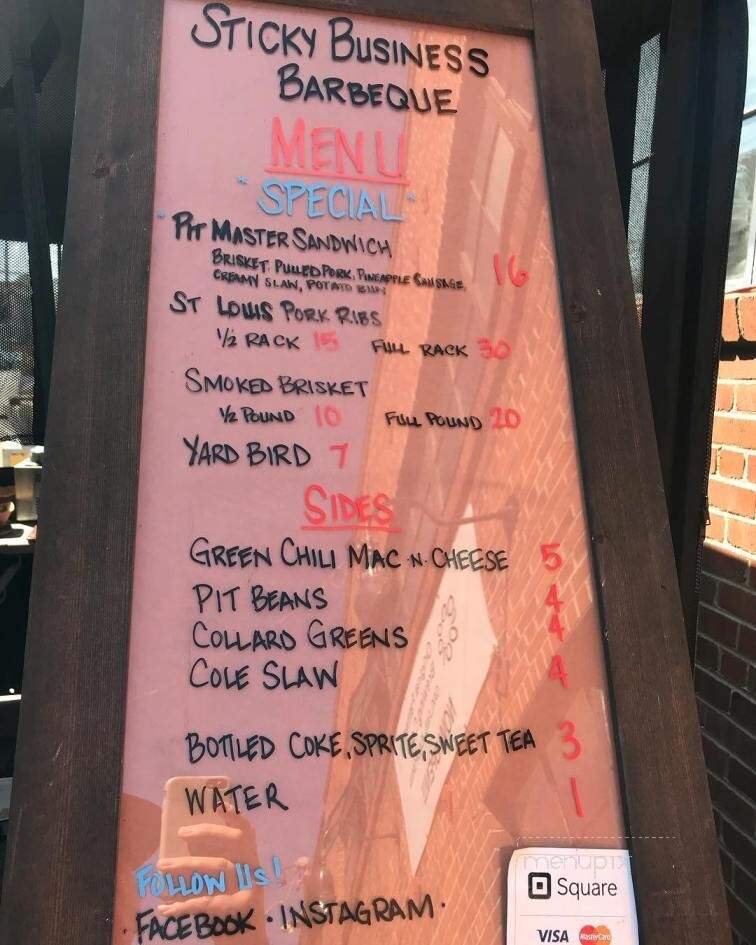 STICKY BUSINESS
BARBEQUE
MENU
"SPECIAL"
PIT MASTER SANDWICH
BRISKET, PULLED PORK, PINEAPPLE SAUSAGE, 16
CREAMY SLAW, POTATO BUN
ST LOUIS PORK RIBS
1/2 RACK 15 FULL RACK 30
SMOKED BRISKET
1/2 POUND 10 FULL POUND 20
YARD BIRD 7
SIDES
GREEN CHILI MAC N CHEESE 5
PIT BEANS 4
COLLARD GREENS 4
COLE SLAW 4
BOTTLED COKE, SPRITE, SWEET TEA 3
WATER 1
FOLLOW US!
FACEBOOK · INSTAGRAM ·
menupix
Square
VISA MasterCard